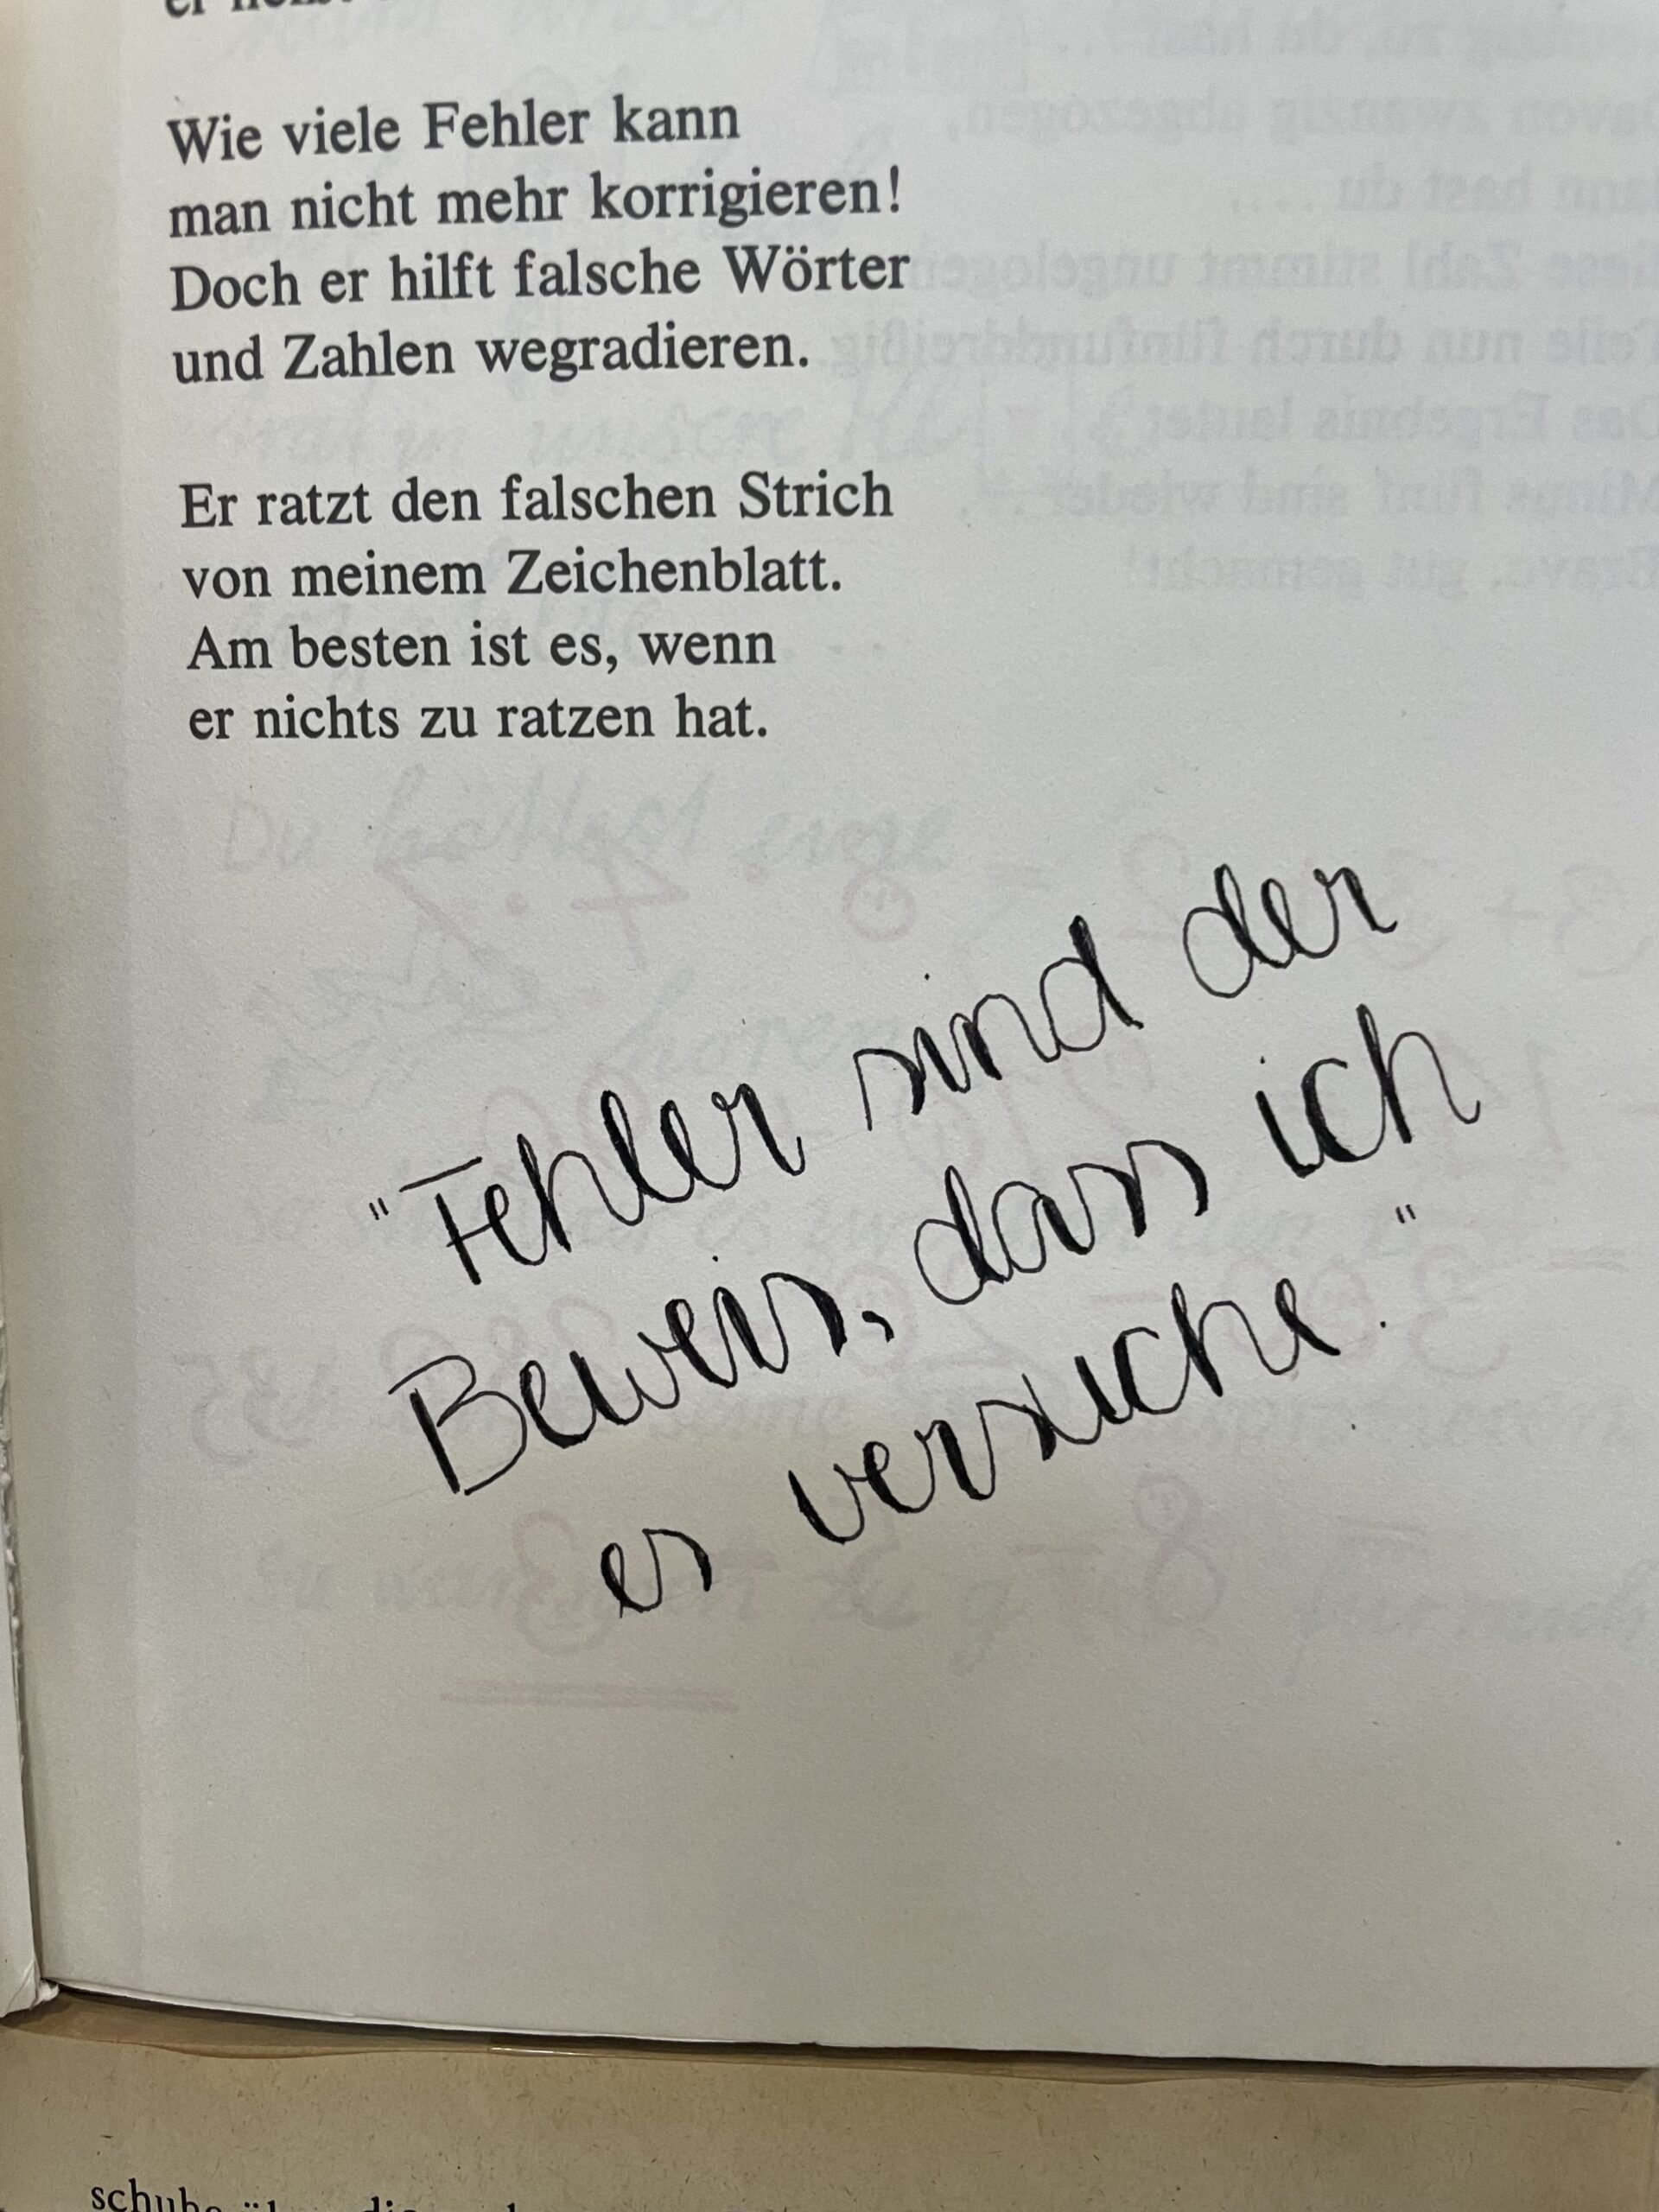 Wie viele Fehler kann
man nicht mehr korrigieren!
Doch er hilft falsche Wörter
und Zahlen wegradieren.
Er ratzt den falschen Strich
von meinem Zeichenblatt.
Am besten ist es, wenn
er nichts zu ratzen hat.
"Fehler sind der
Beweis, dass ich
es versuche."